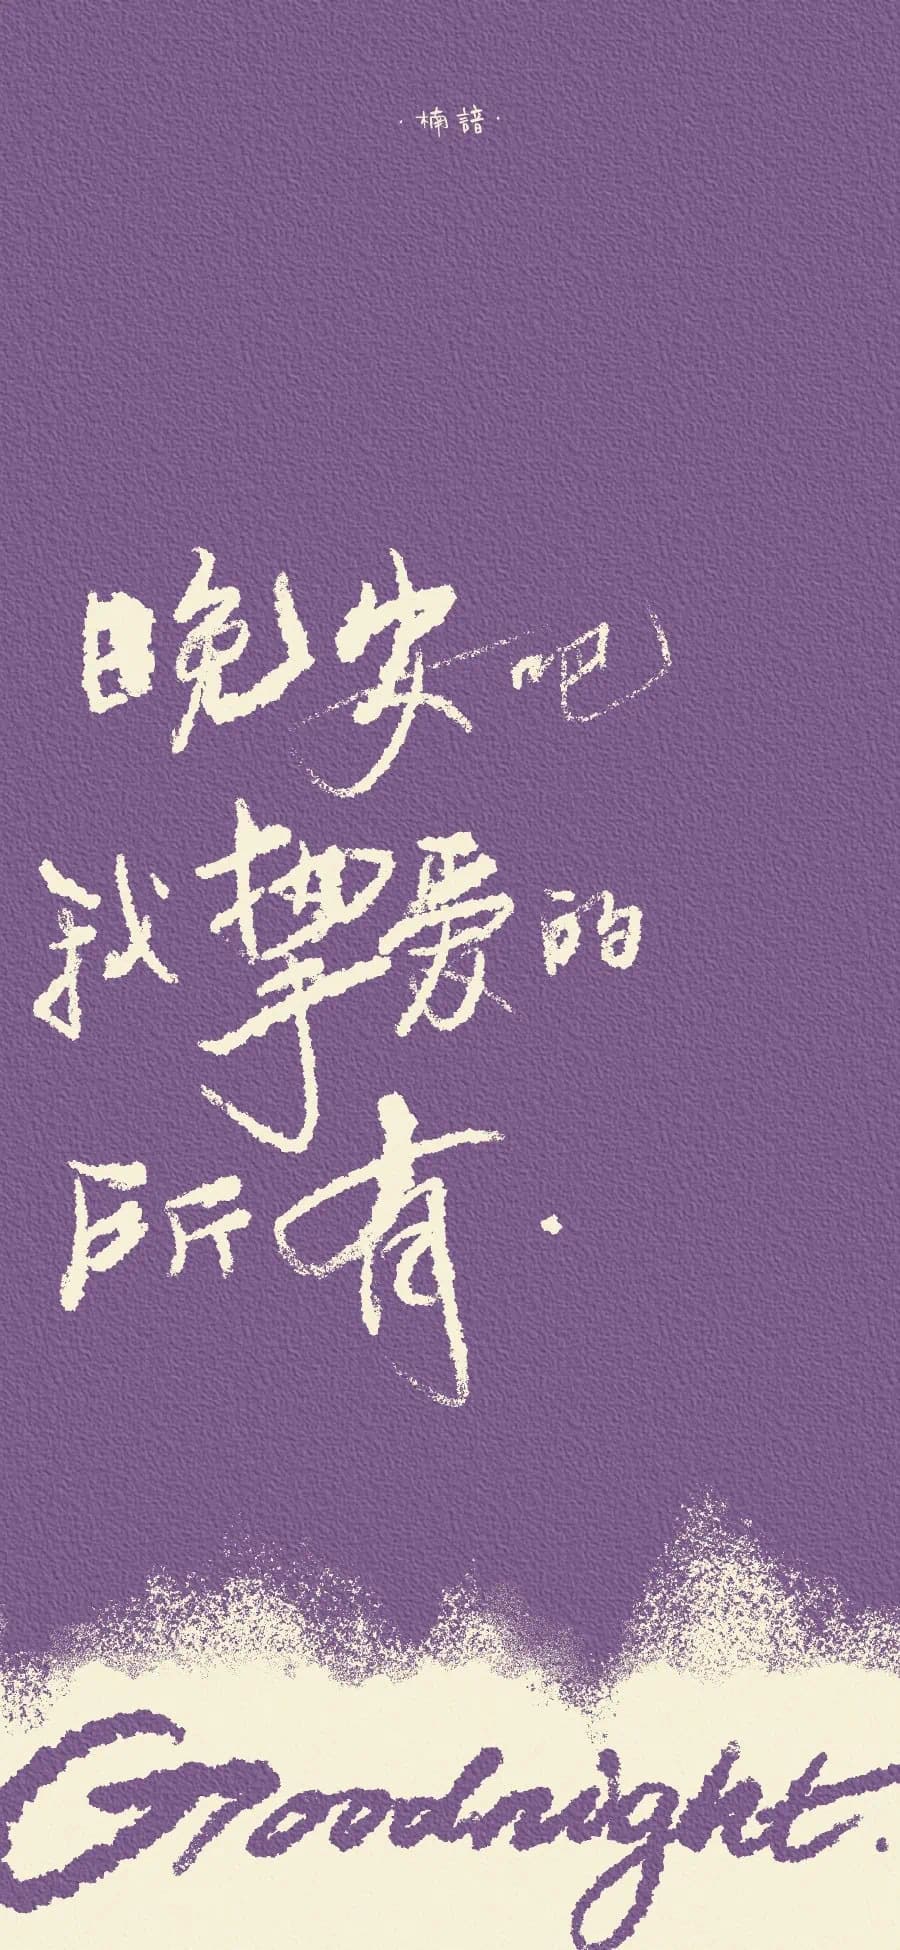 ·楠諳·
晚安吧
我挚爱的
所有.
Goodnight.